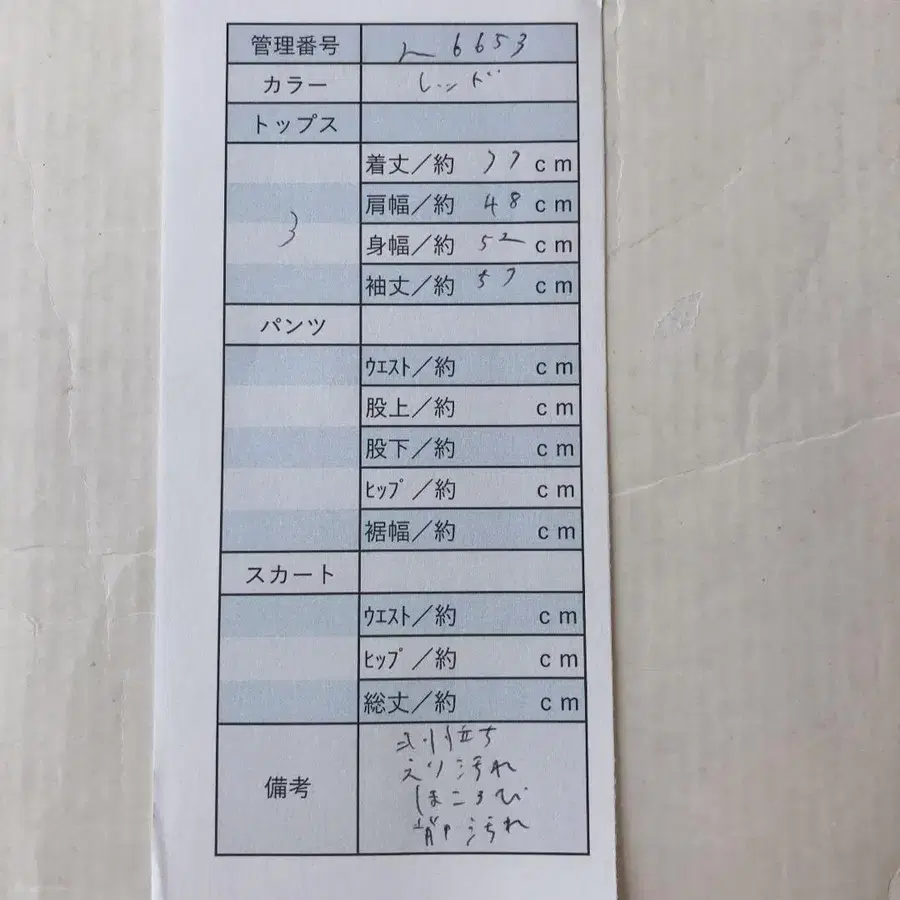 管理番号 6653
カラー レッド
トップス
3
着丈／約 77 cm
肩幅／約 48 cm
身幅／約 52 cm
袖丈／約 57 cm
パンツ
ｳｴｽﾄ／約 cm
股上／約 cm
股下／約 cm
ﾋｯﾌﾟ／約 cm
裾幅／約 cm
スカート
ｳｴｽﾄ／約 cm
ﾋｯﾌﾟ／約 cm
総丈／約 cm
備考
えり汚れ
ほころび
汚れ